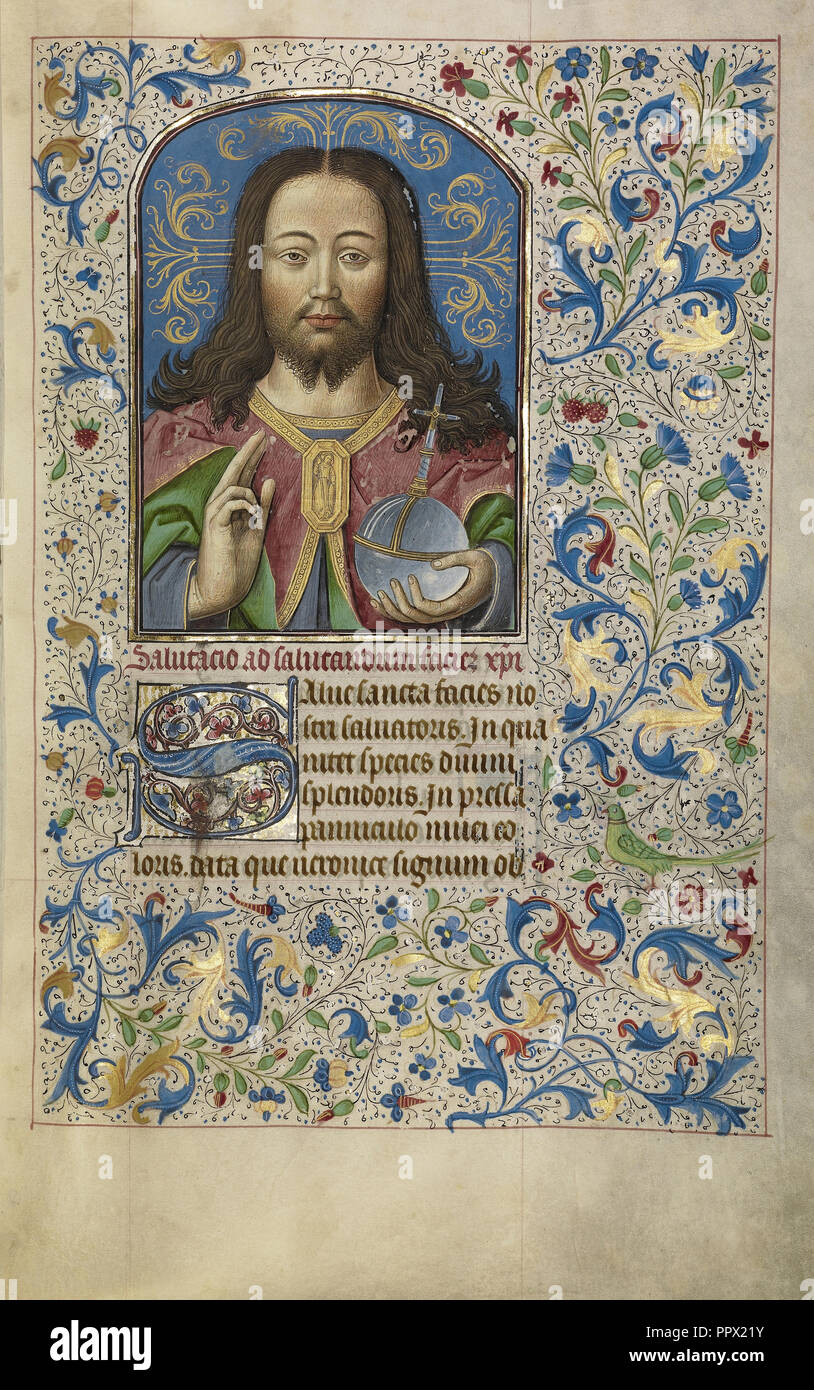 Salutacio ad salutandum faciez xp̄i
SAlue sancta facies no
stri saluatoris. In qua
nitet species diuini
splendoris. In pressa
panniculo niuei co
loris. data que ueronice signum ob
a
alamy
Image ID: PPX21Y
www.alamy.com